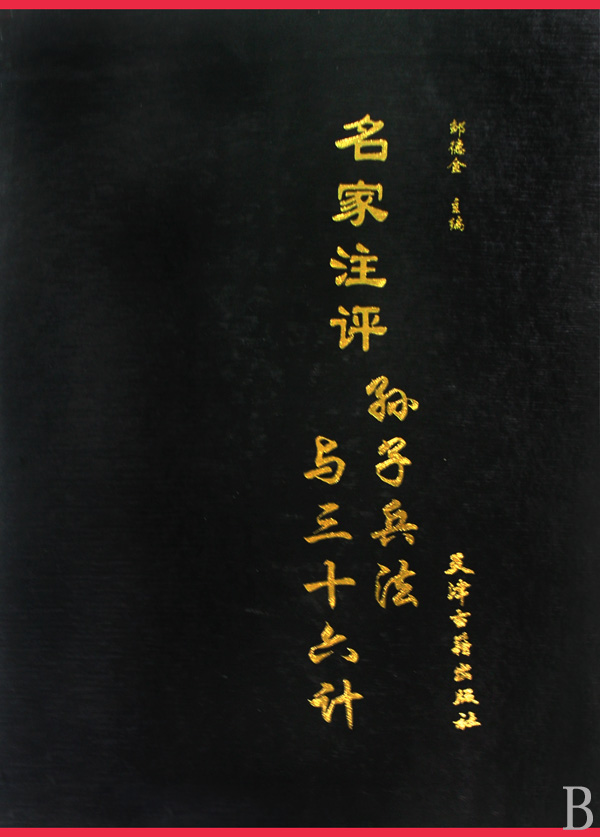 邹德金 主编
名家注评
孙子兵法
与三十六计
天津古籍出版社
B